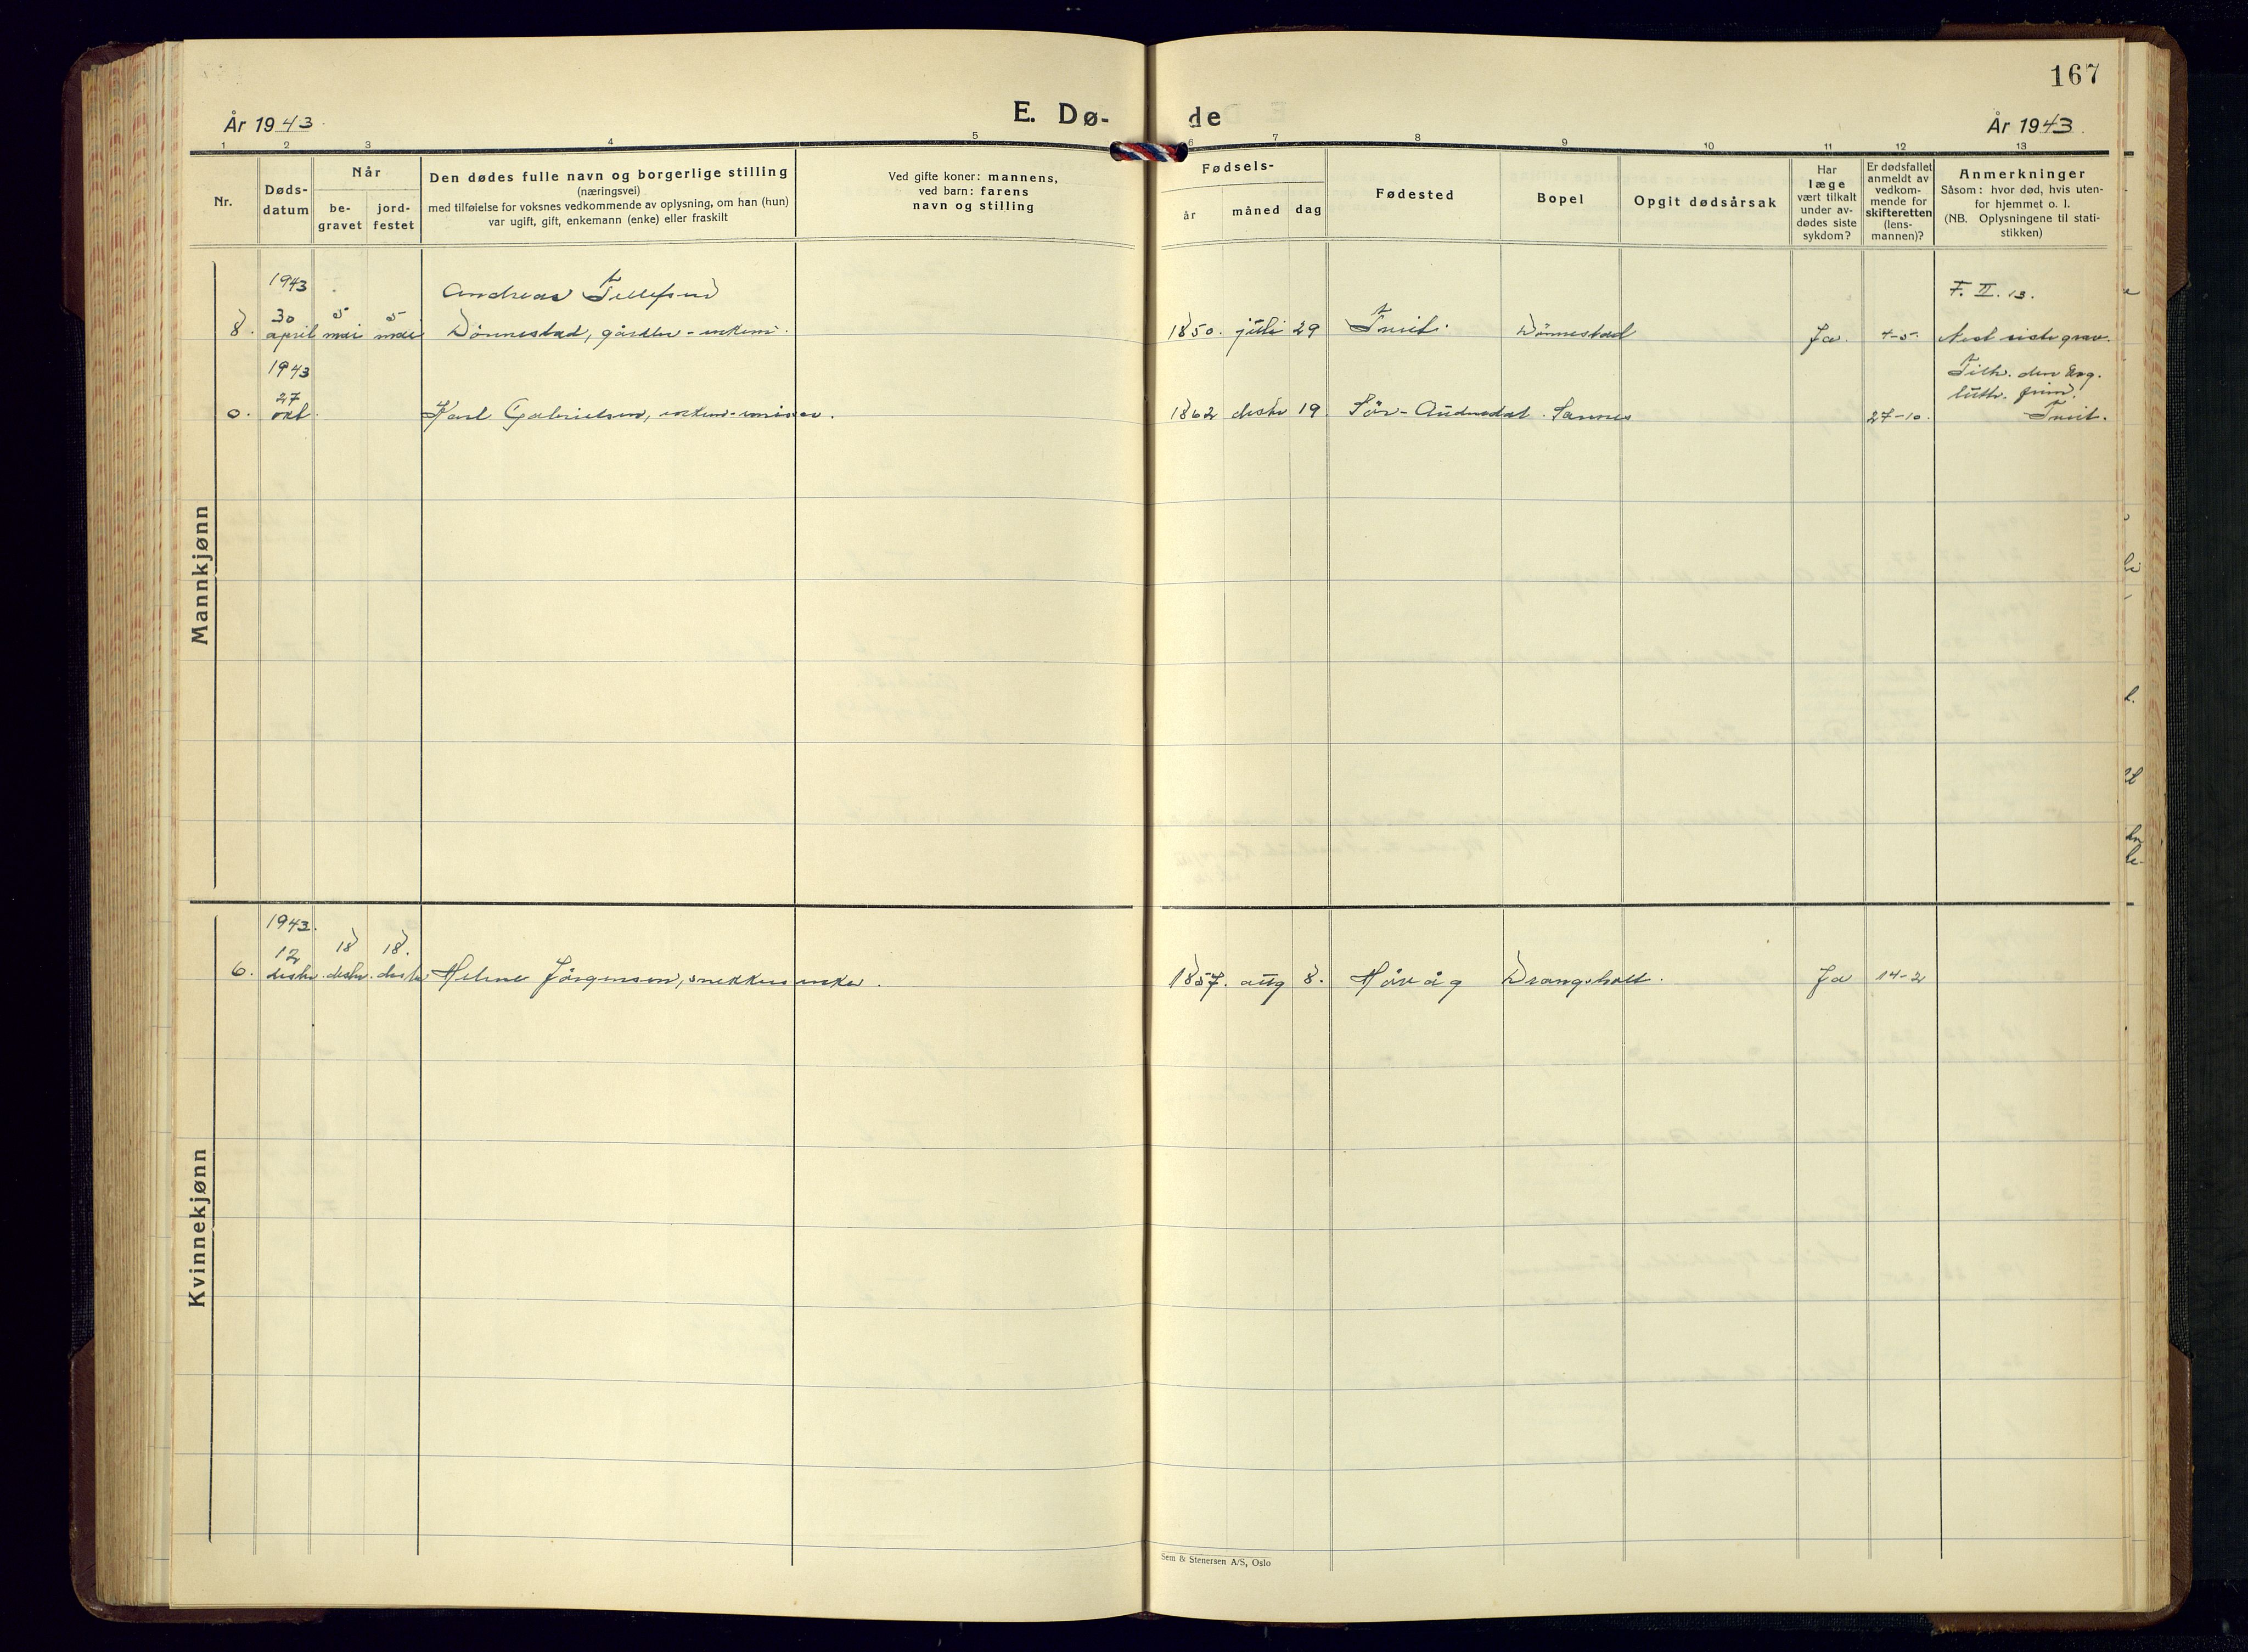 167
År 1943.
E. Dø-
de
År 1943.
1 2 3 4 5 6 7 8 9 10 11 12 13
Nr.
Døds-
datum
Når
be-
gravet
jord-
festet
Den dødes fulle navn og borgerlige stilling
(næringsvei)
med tilføielse for voksnes vedkommende av oplysning, om han (hun)
var ugift, gift, enkemann (enke) eller fraskilt
Ved gifte koner: mannens,
ved barn: farens
navn og stilling
Fødsels-
år
måned
dag
Fødested
Bopel
Opgit dødsårsak
Har
læge
vært tilkalt
under av-
dødes siste
sykdom?
Er dødsfallet
anmeldt av
vedkom-
mende for
skifteretten
(lens-
mannen)?
Anmerkninger
Såsom: hvor død, hvis uten-
for hjemmet o. l.
(NB. Oplysningene til stati-
stikken)
Mannkjønn
1943
Andreas Tellefsen
F. II. 13.
30 5 5
8. april mai mai Dönnestad, gårdbr-enkem. 1850. juli 29 Tveit. Dönnestad Ja. 4-5. Nest siste grav.
1943
Tilh. den Evg.
27
luth. frim.
0. okt Karl Gabrielsen, enkem- 1862 desbr 19. Sör-Audnedal. Sannes 27-10. Tveit.
Kvinnekjønn
1943.
12 18 18.
6. desbr. desbr. desbr. Helene Jörgensen, snekkers enke. 1857. aug 8. Høvåg Drangsholt. Ja 14-2
Sem & Stenersen A/S, Oslo